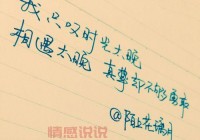 我只叹时光太晚
相遇太晚 真挚却不够勇敢
@陌上花满月
情感说说